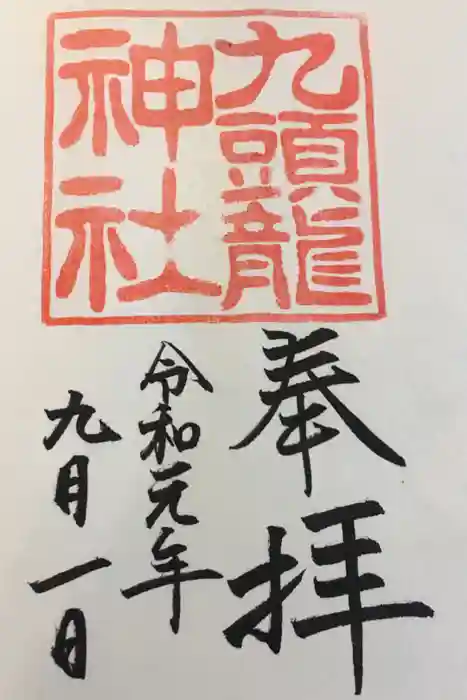 九頭龍
神社
奉拝
令和元年
九月一日